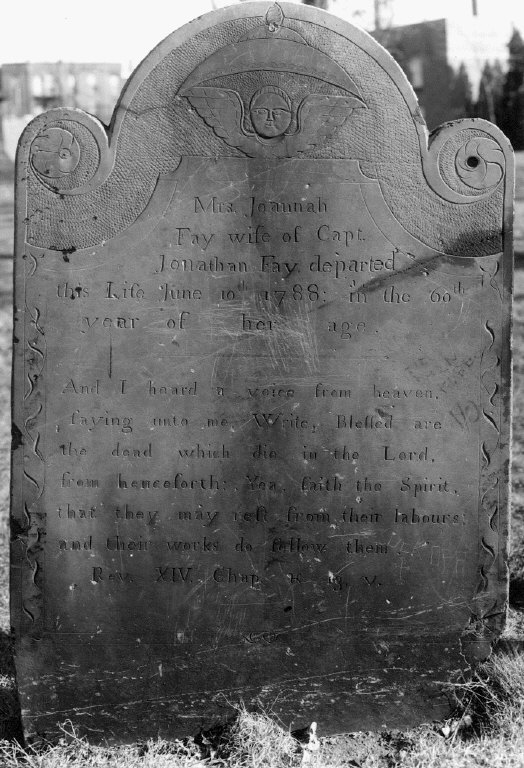 Mrs. Joannah
Fay wife of Capt.
Jonathan Fay, departed
this Life June 10th 1788; in the 60th
year of her age.
And I heard a voice from heaven,
ſaying unto me, Write, Bleſſed are
the dead which die in the Lord,
from henceforth: Yea, ſaith the Spirit,
that they may reſt from their labours;
and their works do follow them.
Rev. XIV. Chap. v.